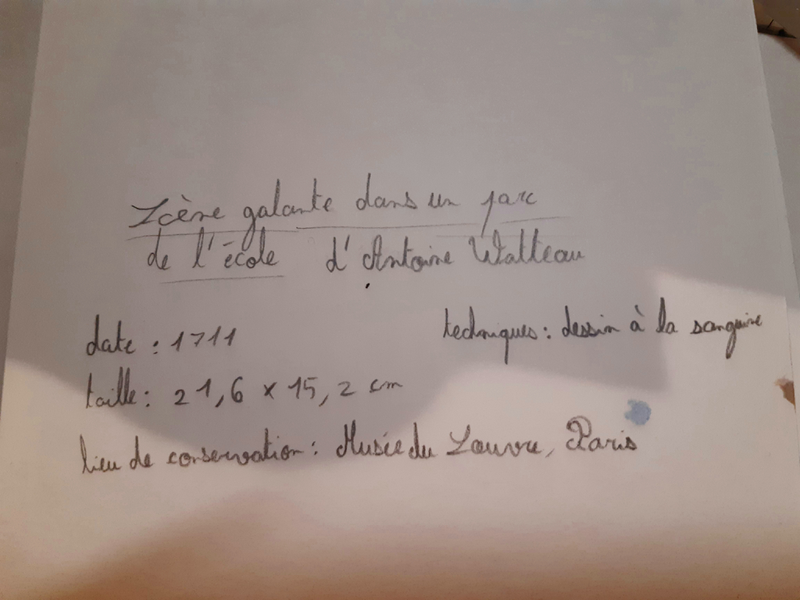 Scène galante dans un parc
de l'école d'Antoine Watteau
date : 1711
techniques : dessin à la sanguine
taille : 21,6 x 15,2 cm
lieu de conservation : Musée du Louvre, Paris